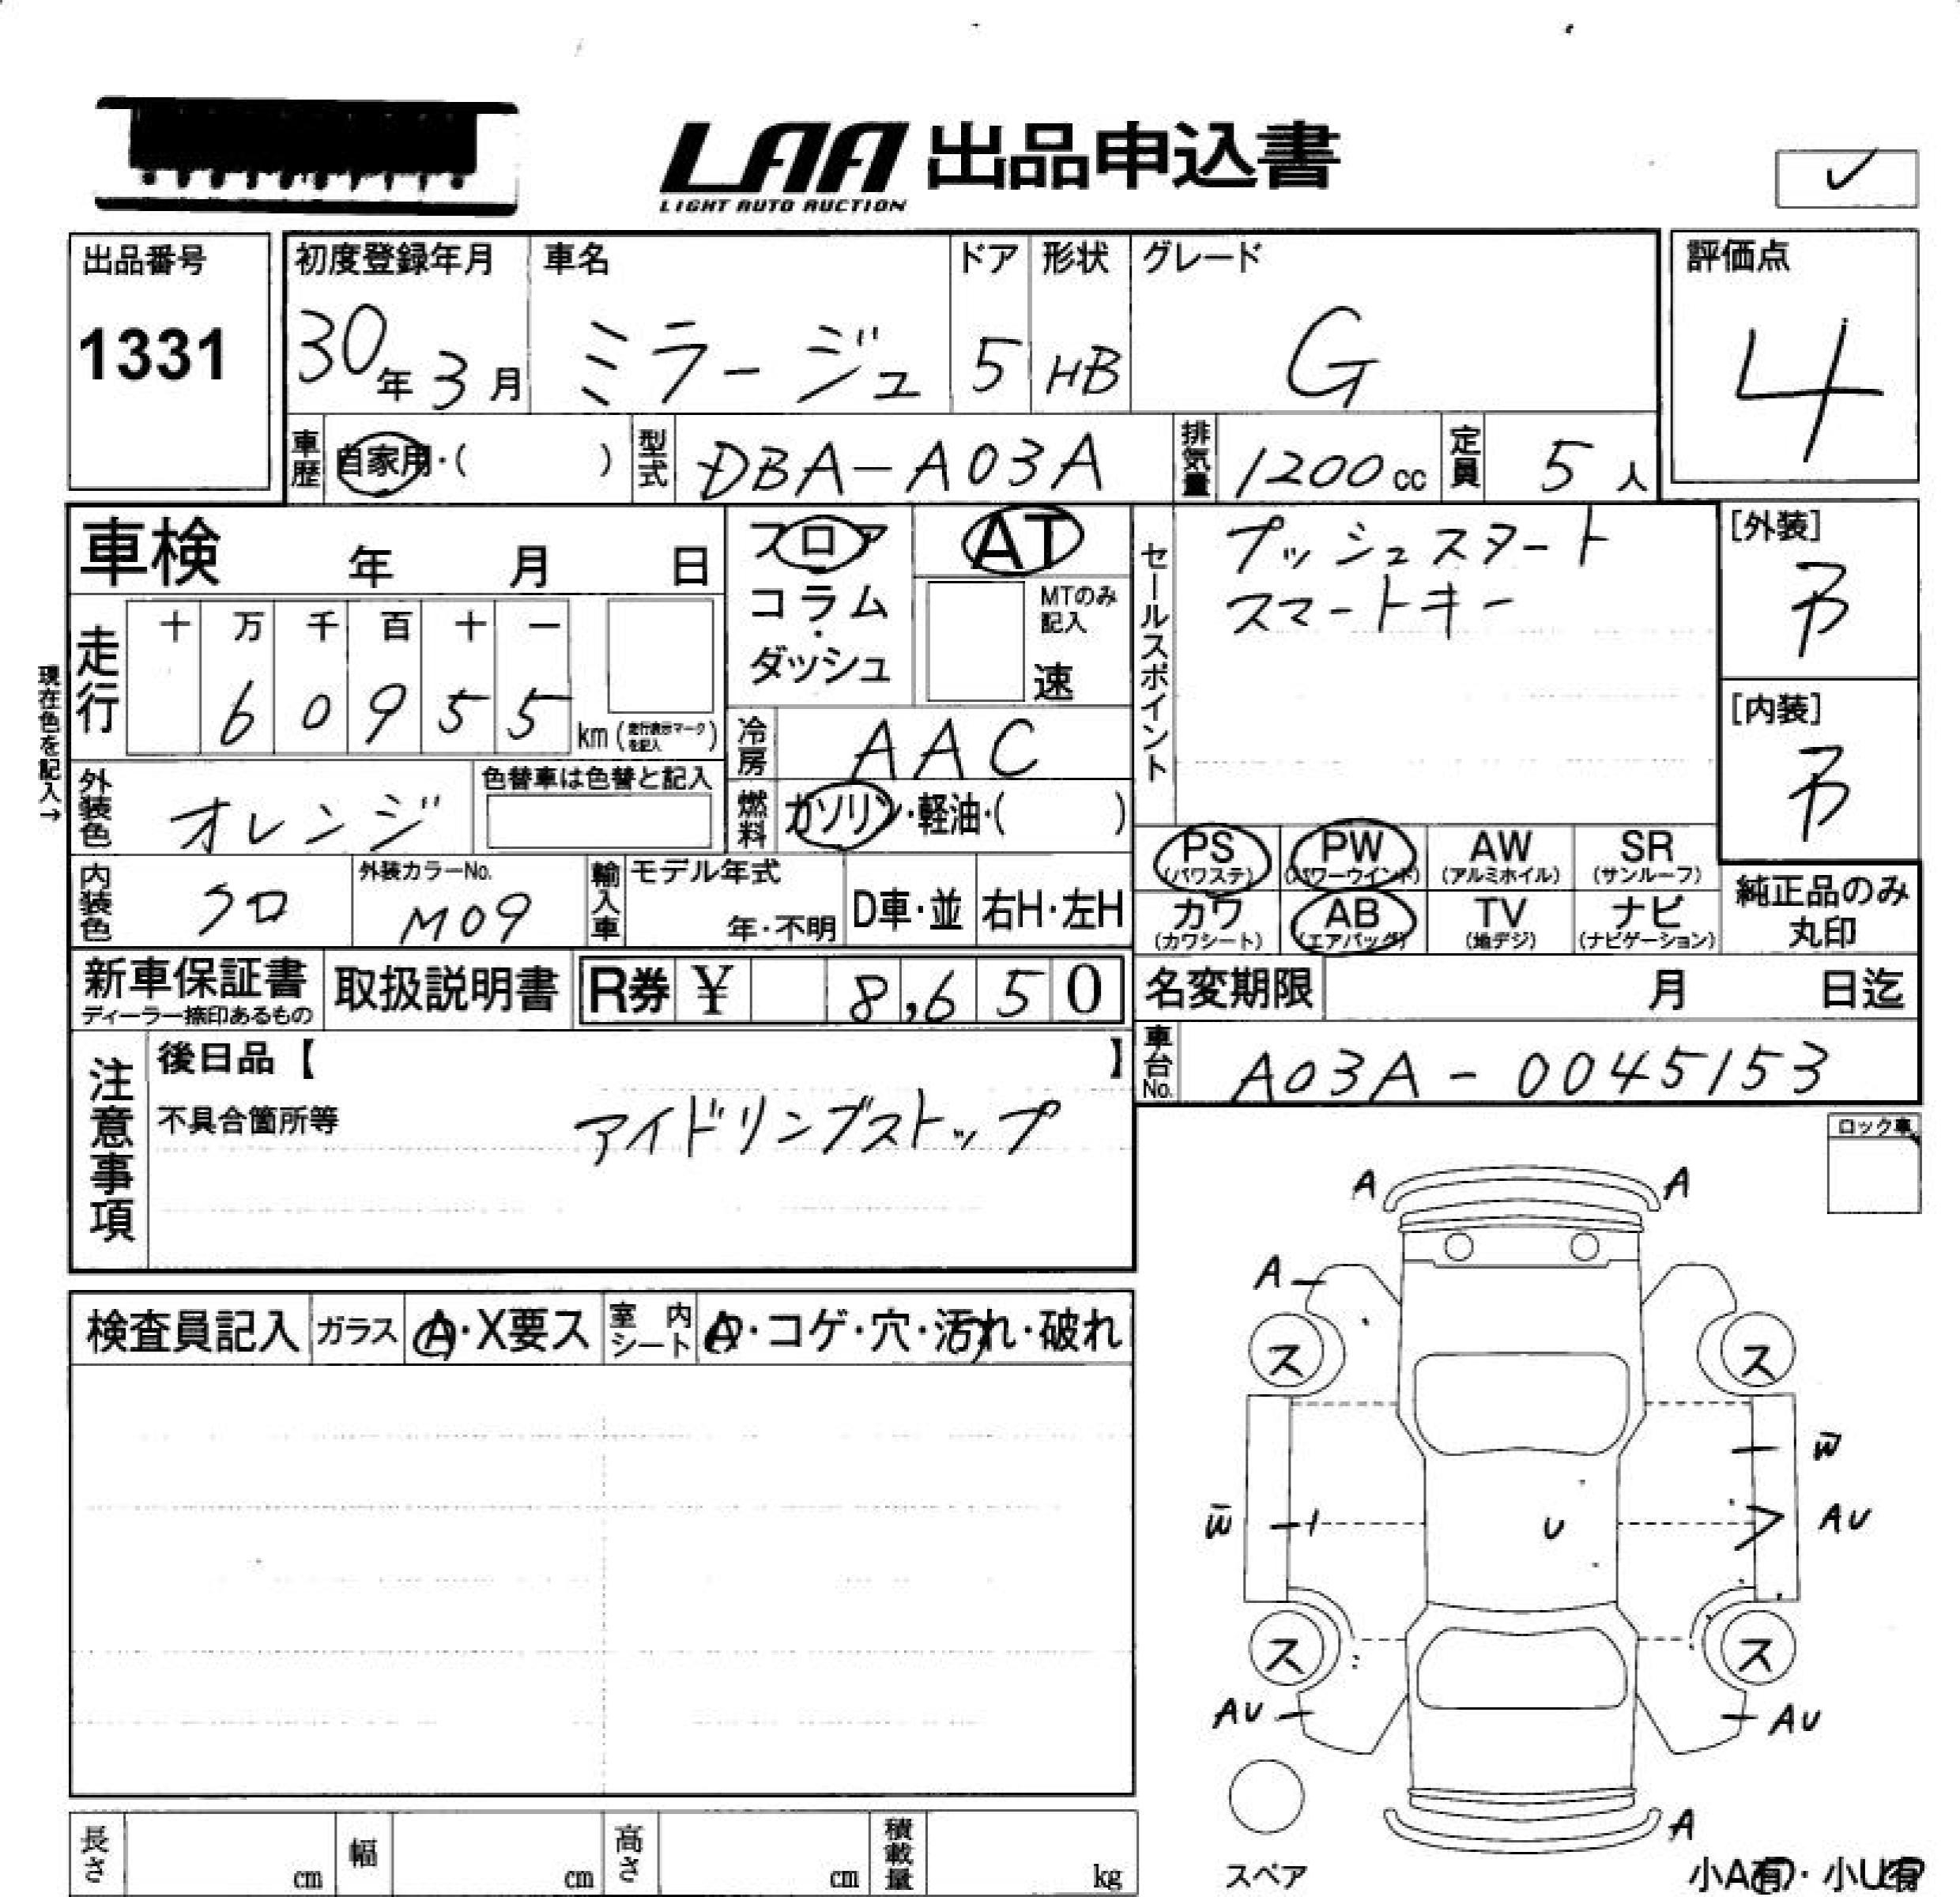 LAA 出品申込書
LIGHT AUTO AUCTION
✓
出品番号
1331
初度登録年月
30年3月
車名
ミラージュ
ドア
5
形状
HB
グレード
G
評価点
4
車歴 自家用・( )
型式 DBA-A03A
排気量 1200cc
定員 5人
車検 年 月 日
フロア
コラム
・
ダッシュ
AT
MTのみ
記入
速
セールスポイント
プッシュスタート
スマートキー
[外装]
B
[内装]
B
走行
十 万 千 百 十 一
6 0 9 5 5 km (走行表示マークを記入)
現在色を記入→
冷房 AAC
外装色 オレンジ
色替車は色替と記入
燃料 ガソリン・軽油・( )
内装色 クロ
外装カラーNo.
M09
輸入車
モデル年式
年・不明
D車・並
右H・左H
PS
(パワステ)
PW
(パワーウインド)
AW
(アルミホイル)
SR
(サンルーフ)
カワ
(カワシート)
AB
(エアバッグ)
TV
(地デジ)
ナビ
(ナビゲーション)
純正品のみ
丸印
新車保証書
ディーラー捺印あるもの
取扱説明書
R券 ¥ 8,650
名変期限 月 日迄
注意事項
後日品【 】
不具合箇所等
アイドリングストップ
車台No. A03A-0045153
ロック車
検査員記入
ガラス A・X要ス
室内シート A・コゲ・穴・汚れ・破れ
A A
A
ス ス
W
W U AU
ス ス
AU AU
A
スペア
小A有・小U有
長さ cm
幅 cm
高さ cm
積載量 kg